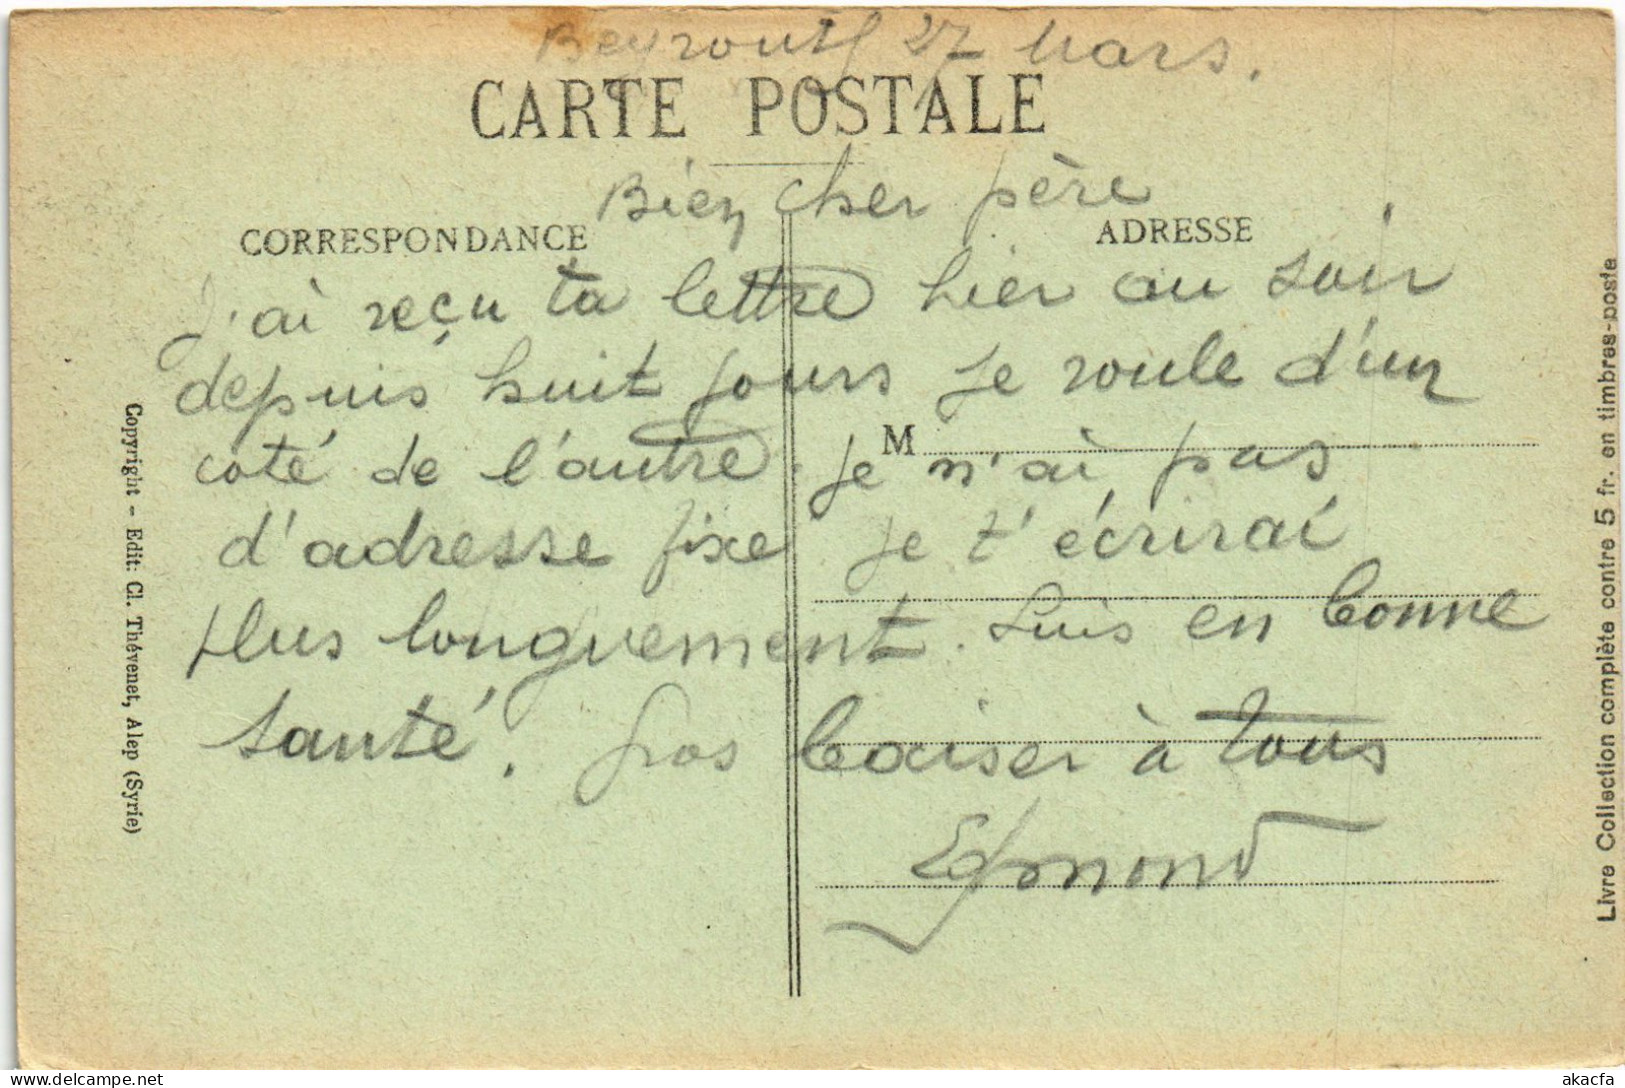 Beyrouth 27 Mars.
CARTE POSTALE
Bien cher père
CORRESPONDANCE
ADRESSE
J'ai reçu ta lettre hier au soir
depuis huit jours je roule d'un
coté de l'autre. je n'ai pas
M
d'adresse fixe je t'écrirai
plus longuement. Suis en bonne
santé. gros baiser à tous
Edmond
Copyright - Edit: Cl. Thévenet, Alep (Syrie)
Livre Collection complète contre 5 fr. en timbres-poste
akacfa